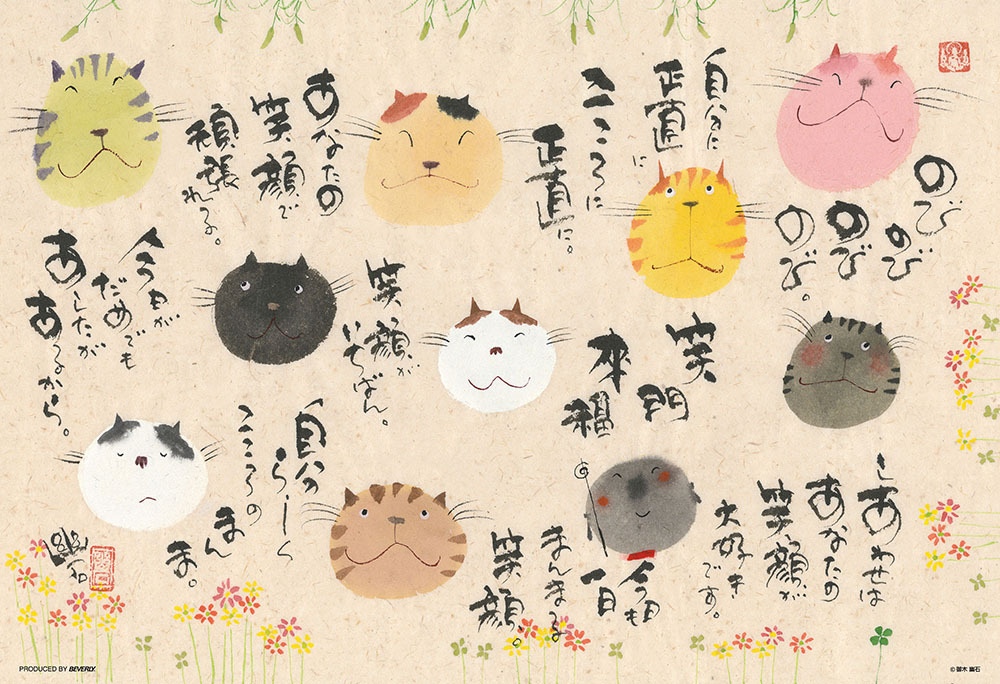 のび
のび
のび
のび。
自分に
正直に
こころに
正直に。
あなたの
笑顔で
頑張れる。
しあわせは
あなたの
笑顔が
大好き
です。
笑
門
来
福
笑顔が
いちばん。
今日が
だめでも
あしたが
あるから。
今日も
一日
まんまるな
笑顔。
自分らしく
こころの
まん
ま。
幽石
PRODUCED BY BEVERLY.
© 御木 幽石